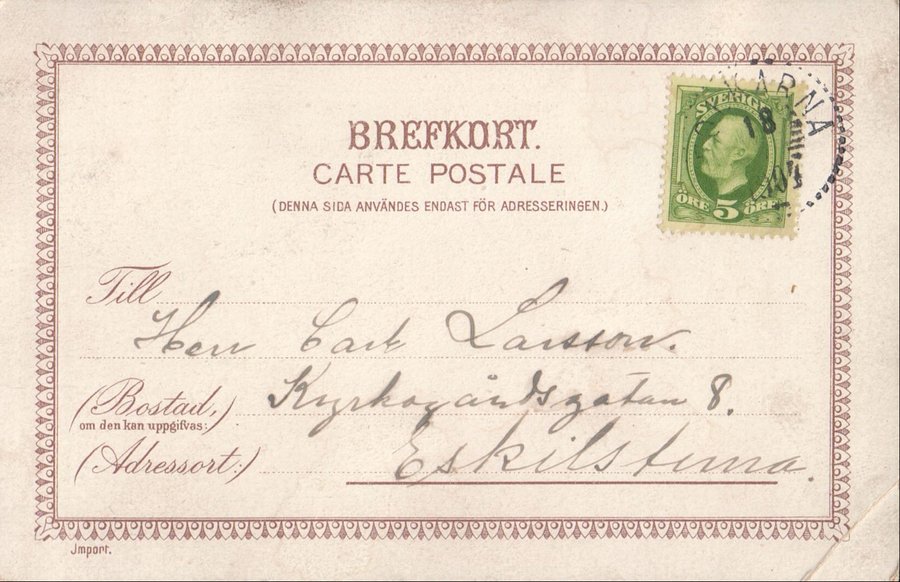 BREFKORT.
CARTE POSTALE
(DENNA SIDA ANVÄNDES ENDAST FÖR ADRESSERINGEN.)
SVERIGE
18
ÖRE 5 ÖRE
Till
Herr Carl Larsson.
(Bostad,)
om den kan uppgifvas:
Kyrkogårdsgatan 8.
(Adressort:)
Eskilstuna.
Import.